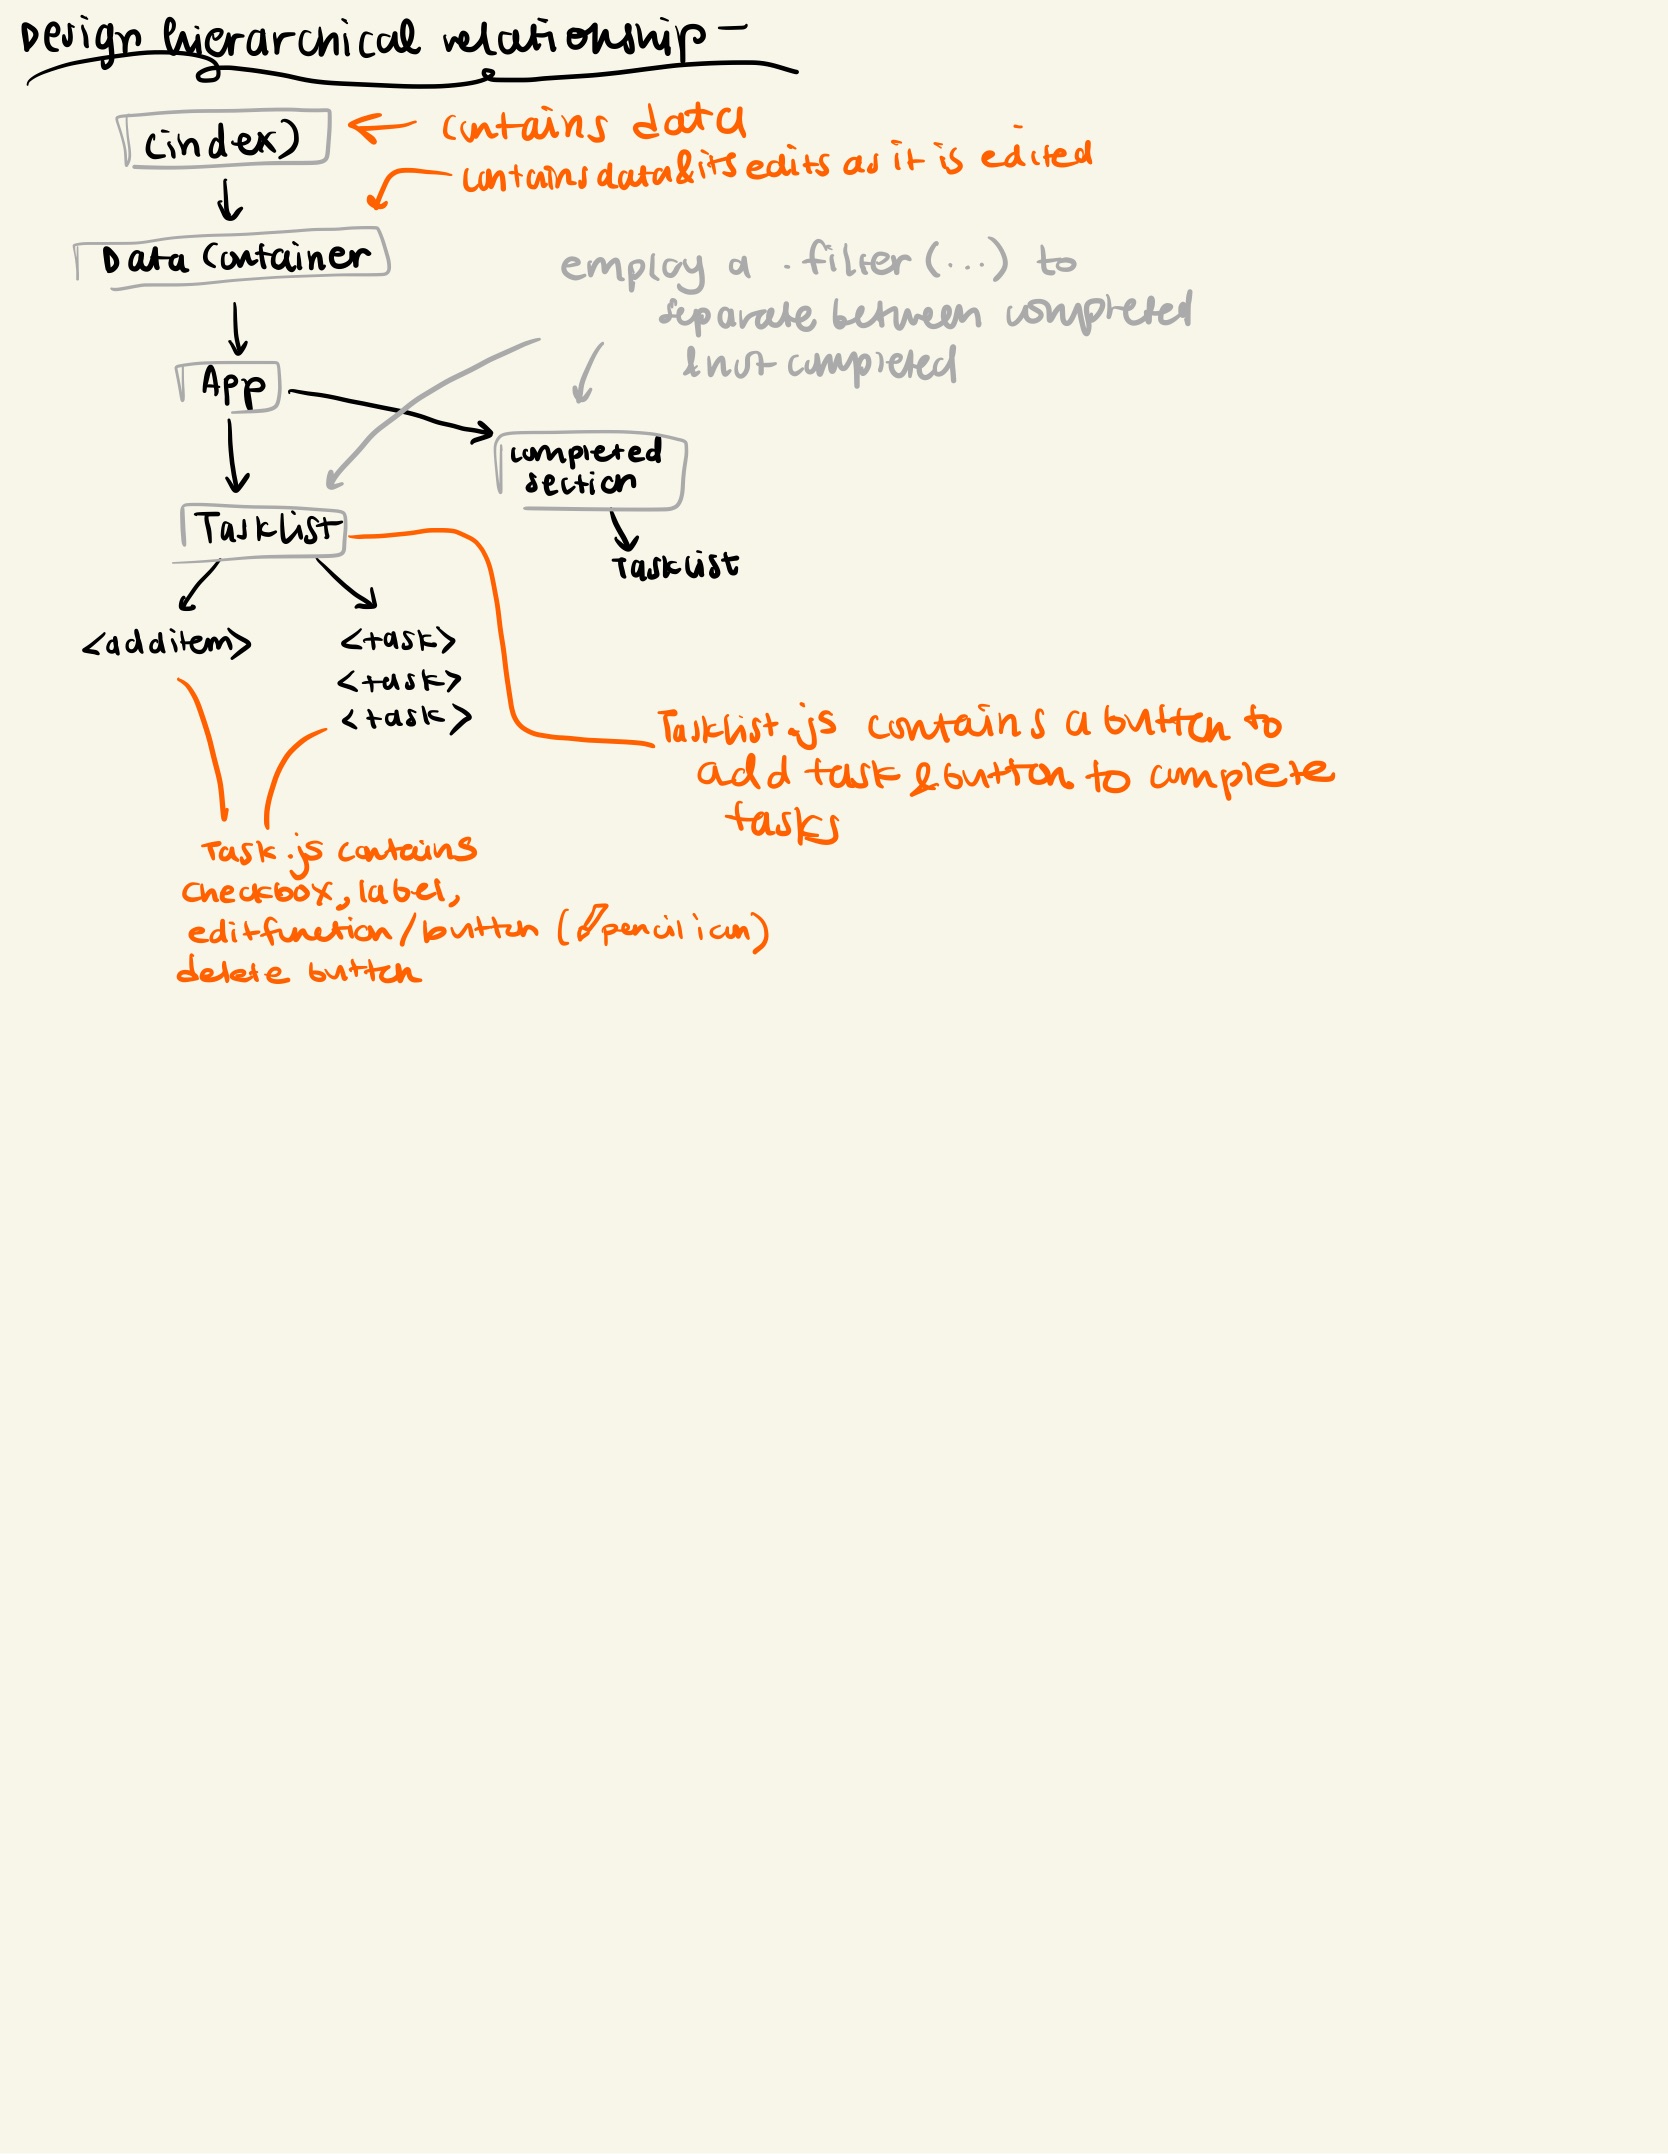 Design hierarchical relationship-
(index)
contains data
contains data & its edits as it is edited
Data Container
employ a .filter(...) to
separate between completed
& not completed
App
completed
section
TaskList
TaskList
<additem>
<task>
<task>
<task>
TaskList.js contains a button to
add task & button to complete
tasks
Task.js contains
checkbox, label,
edit function/button (pencil icon)
delete button